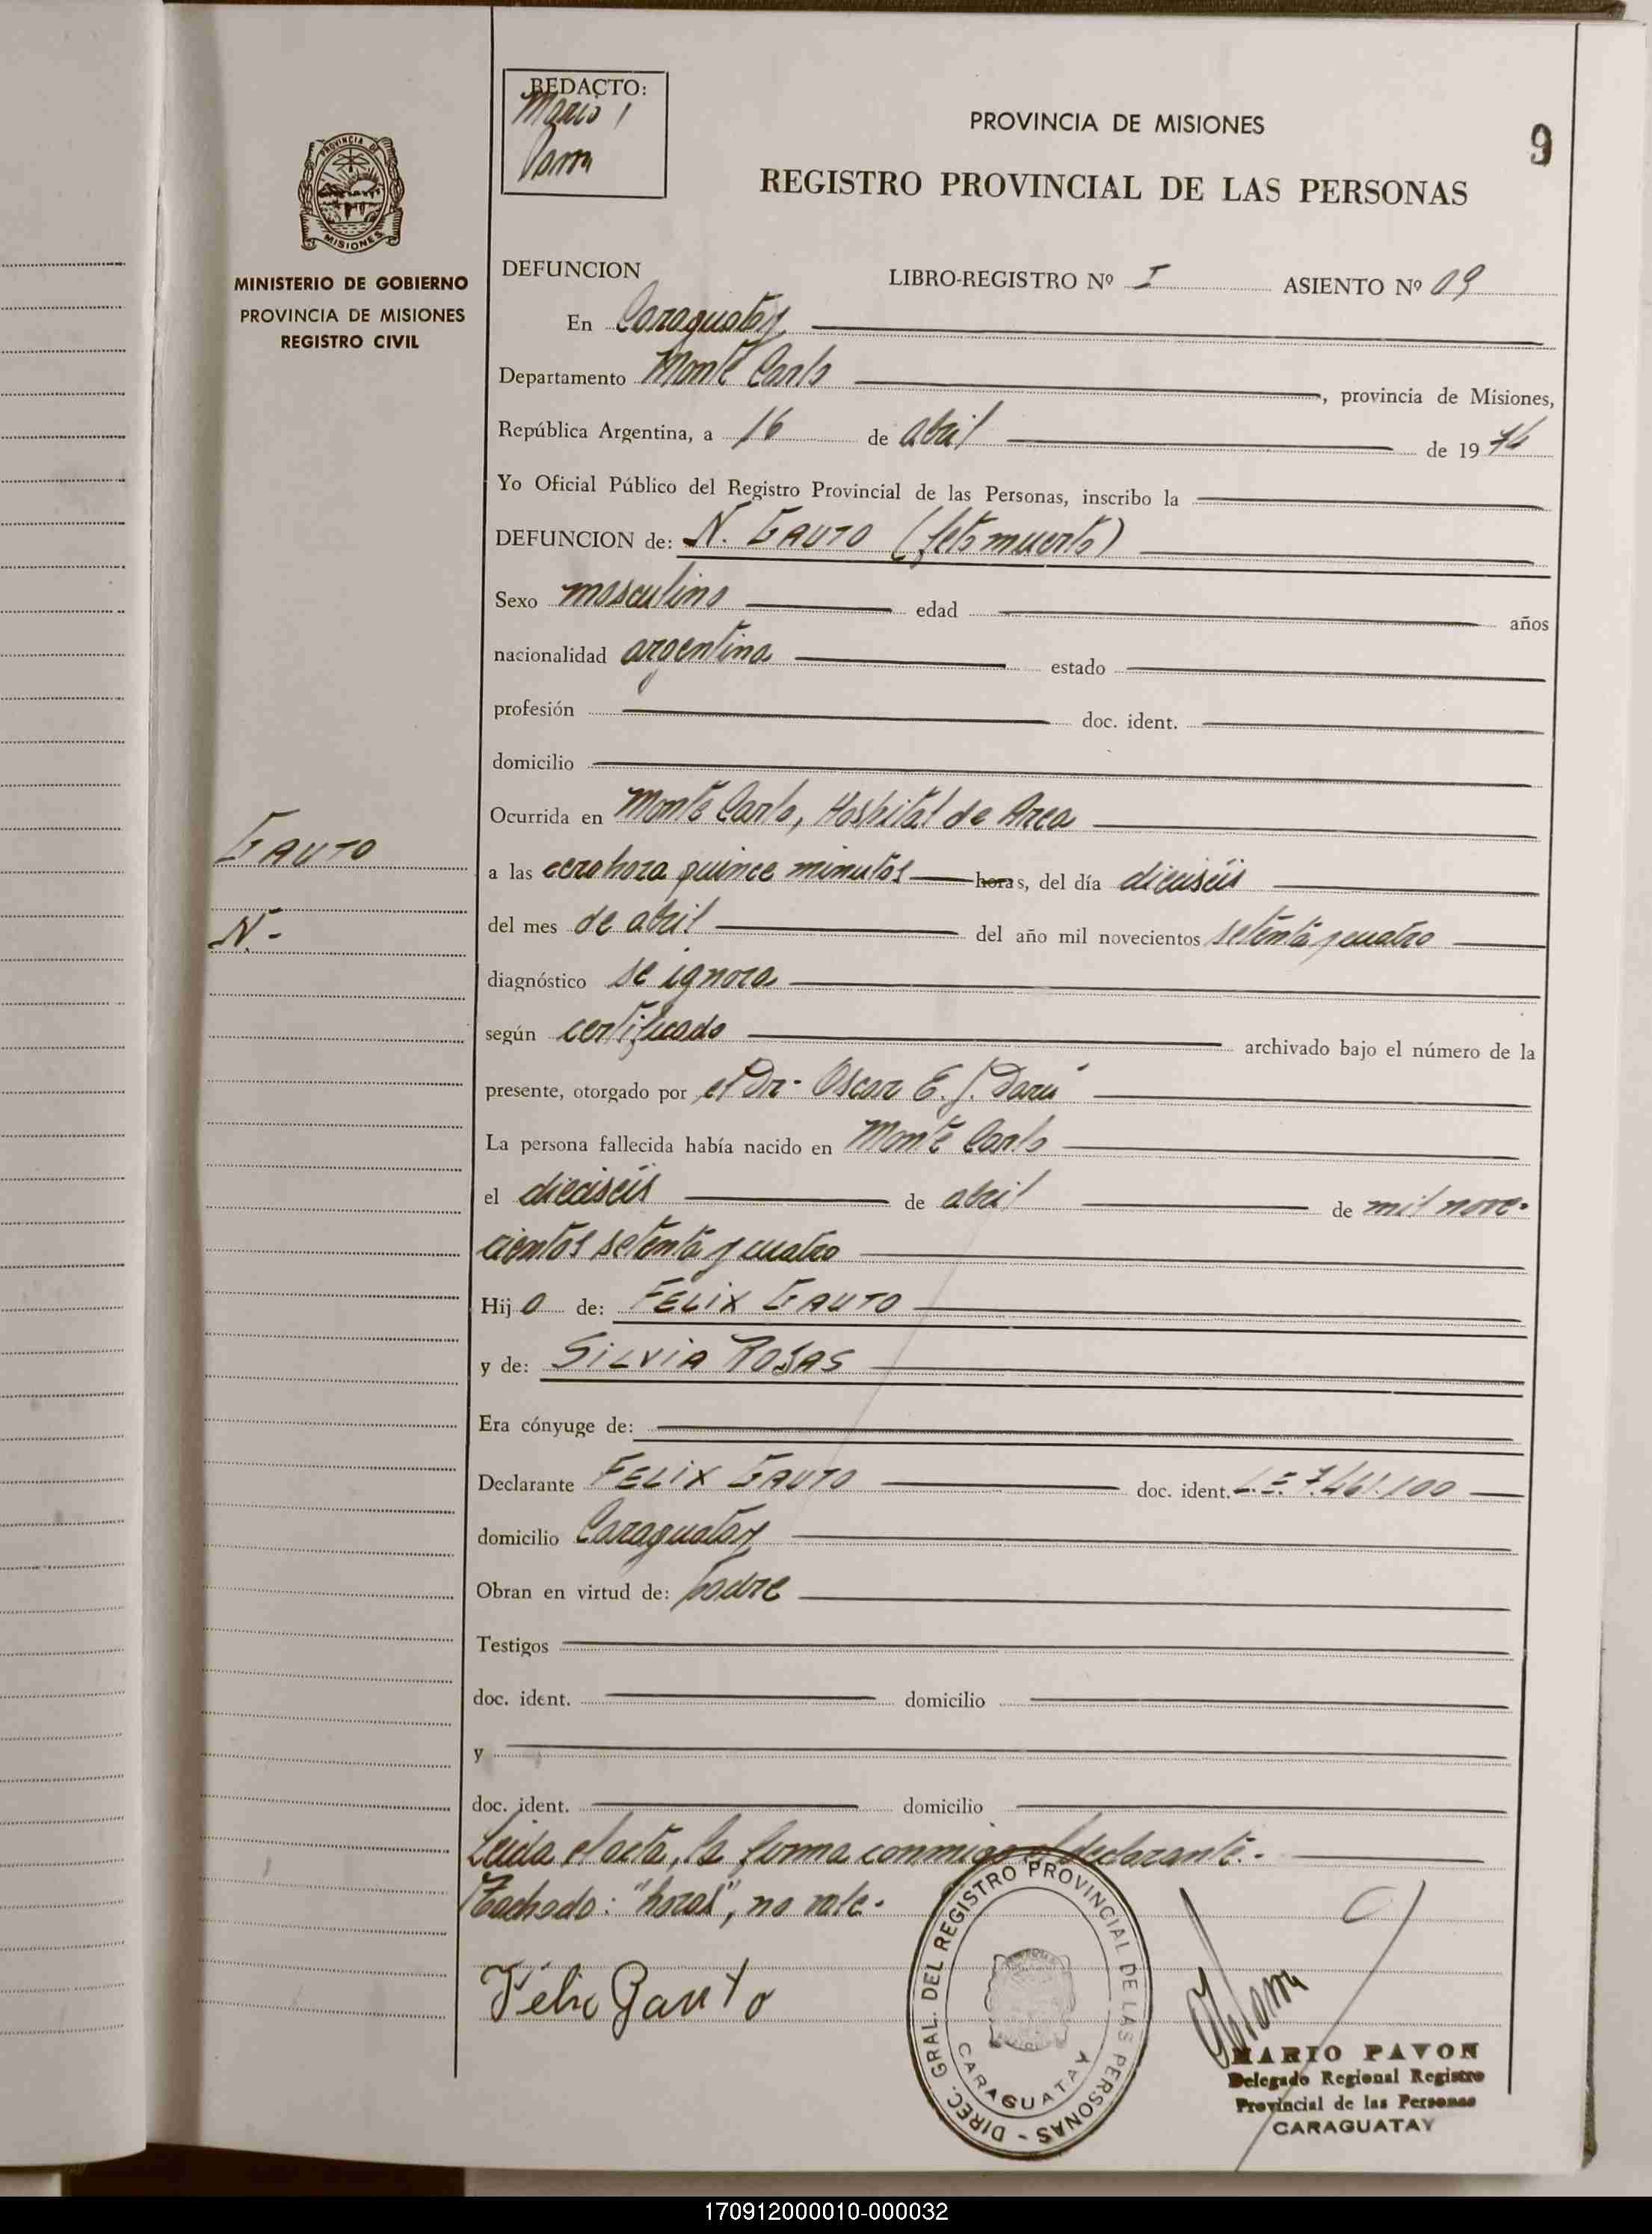 REDACTO:
Mario
Pavon
PROVINCIA DE MISIONES
9
REGISTRO PROVINCIAL DE LAS PERSONAS
PROVINCIA DE
MISIONES
MINISTERIO DE GOBIERNO
PROVINCIA DE MISIONES
REGISTRO CIVIL
DEFUNCION
LIBRO-REGISTRO Nº I ASIENTO Nº 09
En Caraguatay
Departamento Monte Carlo, provincia de Misiones,
República Argentina, a 16 de abril de 1974
Yo Oficial Público del Registro Provincial de las Personas, inscribo la
DEFUNCION de: N. GAUTO (feto muerto)
Sexo masculino edad años
nacionalidad argentina estado
profesión doc. ident.
domicilio
Ocurrida en Monte Carlo, Hospital de Area
GAUTO
a las cero hora quince minutos horas, del día dieciséis
N.-
del mes de abril del año mil novecientos setenta y cuatro
diagnóstico se ignora
según certificado archivado bajo el número de la
presente, otorgado por el Dr. Oscar E. J. Darú
La persona fallecida había nacido en Monte Carlo
el dieciséis de abril de mil nove-
cientos setenta y cuatro
Hijo de: FELIX GAUTO
y de: SILVIA ROJAS
Era cónyuge de:
Declarante FELIX GAUTO doc. ident. L.E. 7.461.100
domicilio Caraguatay
Obran en virtud de: padre
Testigos
doc. ident. domicilio
y
doc. ident. domicilio
Leída el acta, la firma conmigo el declarante.-
Tachado: "horas", no vale.-
Félix Gauto
DIREC. GRAL. DEL REGISTRO PROVINCIAL DE LAS PERSONAS -
CARAGUATAY
MARIO PAVON
Delegado Regional Registro
Provincial de las Personas
CARAGUATAY
170912000010-000032